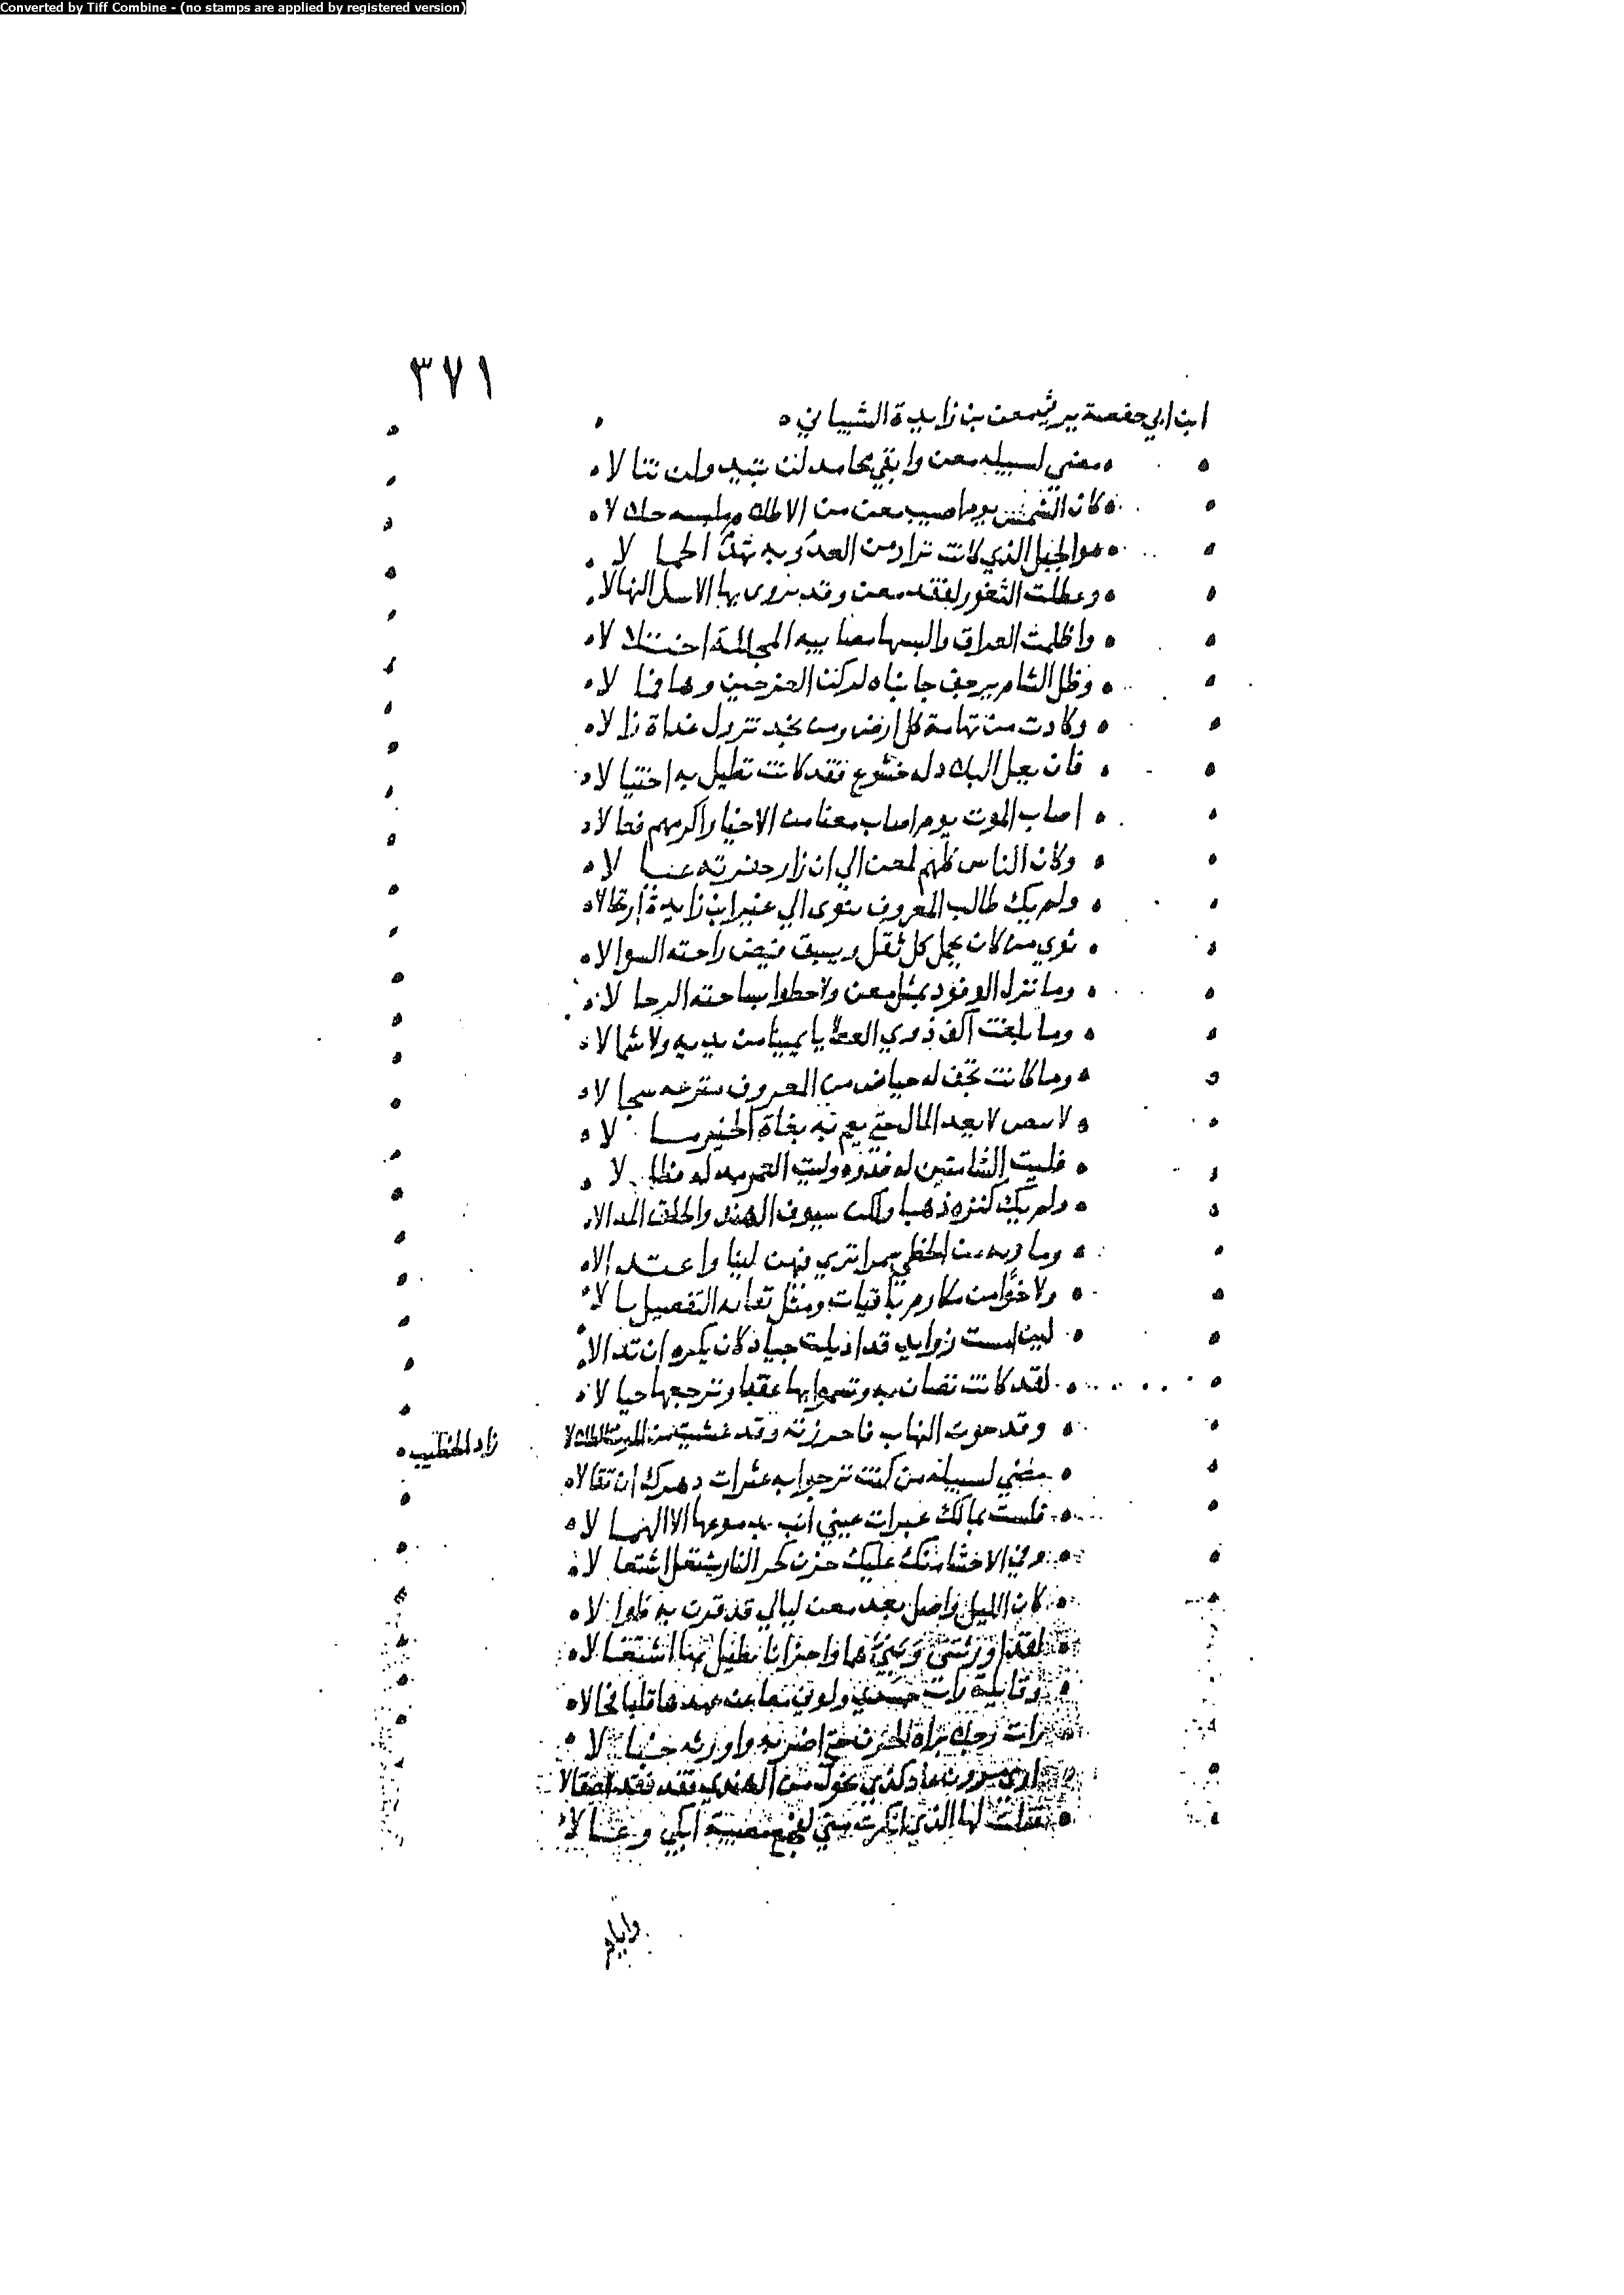 Converted by Tiff Combine - (no stamps are applied by registered version)
٣٧١
ابن ابي حفصة يرثي معن بن زايدة الشيباني
مضي لسبيله معن وابقي محامد لن تبيد ولن تنالا
كان الشمس يوم اصيب معن من الاظلام ملبسه جلالا
هو الجبل الذي كانت نزار من العدو به تهد الجبالا
وعطلت الثغور لفقد معن وقد يروى بها الاسل النهالا
واظلمت العراق والبسها مصابيه المجللة اختلالا
وظل الشام يرجف جانباه لركن العز حين وها فمالا
وكادت من تهامة كل ارض ومن نجد تزول غداة زالا
فان يعل البلاد له خشوع فقد كانت تطيل به اختيالا
اصاب الموت يوم اصاب معنا من الاحيا اكرمهم فعالا
وكان الناس كلهم لمعن الي ان زار حفرته عيالا
ولم يك طالب المعروف ينوى الي غير ابن زايدة ارتحالا
ثوي من كان يحمل كل ثقل ويسبق فيض راحته السوالا
وما نزل الوفود بمثل معن ولا حطوا بساحته الرحالا
وما بلغت اكف ذوي العطايا يمينا من يديه ولا شمالا
وما كانت تجف له حياض من المعروف مترعه سجالا
لا يعد المال حتي يعم به بغاة الخير مالا
فليت الشامتين له فدوه وليت العمر مد له فطالا
ولم يك كنزه ذهبا ولكن سيوف الهند والحلق المذالا
وما من الخطي سمرا تري فيهن لينا واعتدالا
ولا من مكارم باقيات وفضل تعا به التفضيل مالا
لين امست زوايد قد اذيلت جياد كان يكره ان تذالا
لقد كانت تصان به وتسموا بها عقبا وترجعها حيالا
وقد حوت النهاب فاحرزته وقد غشيت من الموت الطلالا
زاد الخطيب
مضي لسبيله من كنت ترجوا به عثرات دهرك ان تقالا
فلست بمالك عبرات عيني ابت بدموعها الا انهمالا
وفي الاحشا منك عليك حزن كحر النار يشتعل اشتعالا
كان الليل واصل بعد معن ليالي قد قرن به فطوالا
لقد اورثتني وبني هما واحزانا نطيل بها اشتغالا
وقايلة رات جسمي ولوني معا عن عهدها قلبا فحالا
رات رجلا براه الحزن حتي اضر به واورثه خبالا
اري مروان عاد كذي نحول من الهندي قد فقد الصقالا
فقلت لها الذي انكرت مني لفجع مصيبة ابكي وعالا
وايام